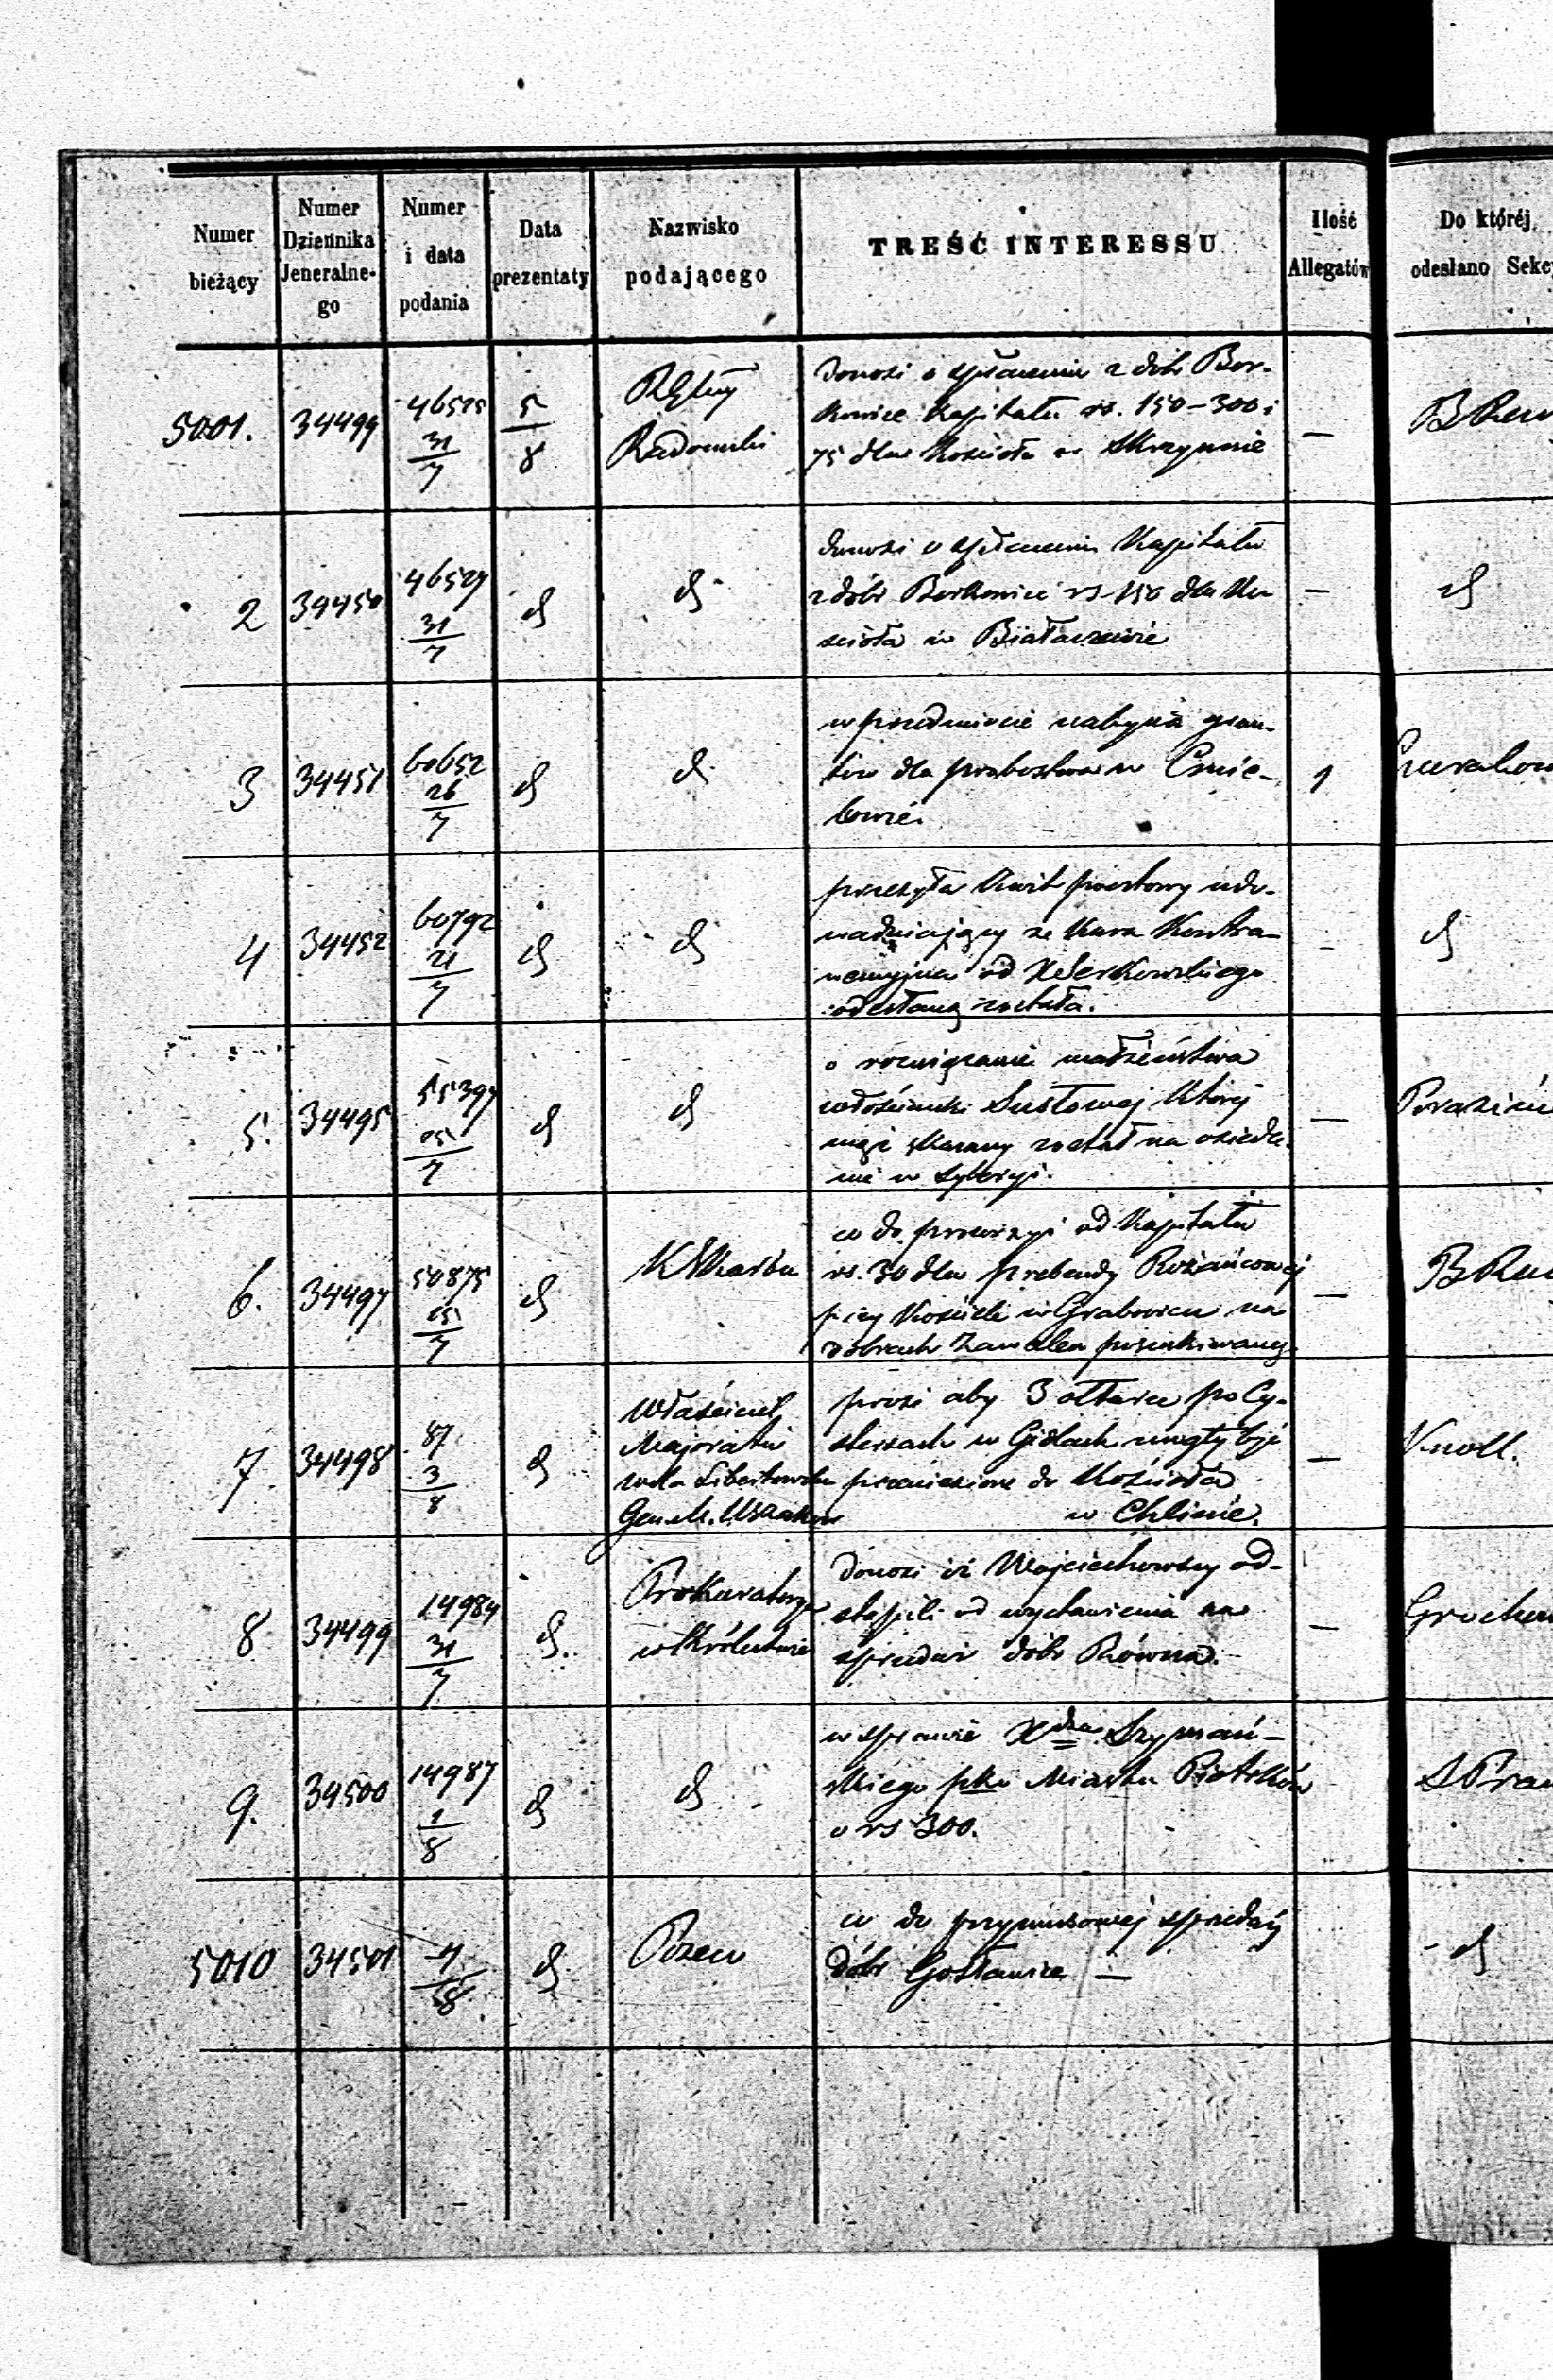 Numer bieżący
Numer Dziennika Jeneralne-go
Numer i data podania
Data prezentaty
Nazwisko podającego
TREŚĆ INTERESSU
Ilość Allegatów
Do któréj odesłano Sekc
5001. 34499 46525 31/7 5/8
RGlny
Radomski
donosi o spłaceniu z dóbr Bor-
kowice kapitału rs. 150 - 300 i
75 dla Kościoła w Skrzynnie
—
2 34450 46527 31/7 d d
donosi o spłaceniu Kapitału
z dóbr Borkowice rs 150 dla Ko
ścioła w Białaczewie
— d
3 34451 60652 26/7 d d
w przedmiocie nabycia grun-
tów dla probostwa w Cmie-
lowie.
1
4 34452 60792 21/7 d d
przesyła Kwit pocztowy udo-
wadniający że Kara
od X Serkowskiego
odesłaną została.
- d
5. 34495 55397 25/7 d d
o rozwiązanie małżeństwa
włościanki Susłowej której
mąż skazany został na osiedle-
nie w Syberyi.
—
6. 34497 50875 25/7 d
KSkarbu
co do prowizyi od Kapitału
rs. 30 dla prebendy Rożańcowej
przy Kościele w Grabowcu na
dobrach poszukiwanej
—
7 34498 87 3/8 d
Właściciel
Majoratu
Wola Libertowska
Gen. M.
prosi aby 3 ołtarze po Cy-
stersach w Gidlach mogły być
przeniesione do Kościoła
w Chlinie.
— Knoll.
8 34499 14984 31/7 d.
Prokuratorya
w Królestwie
donosi iż Wojciechowscy od-
stąpili od wystawienia na
sprzedaż dóbr Równa.
—
9. 34500 14987 1/8 d d
w sprawie Xdza Szymań-
skiego pko Miastu Piotrków
o rs 300.
S Praw
5010 34501 4/8 d
Pozew
co do przymusowej sprzedaży
dóbr Gosławice —
d